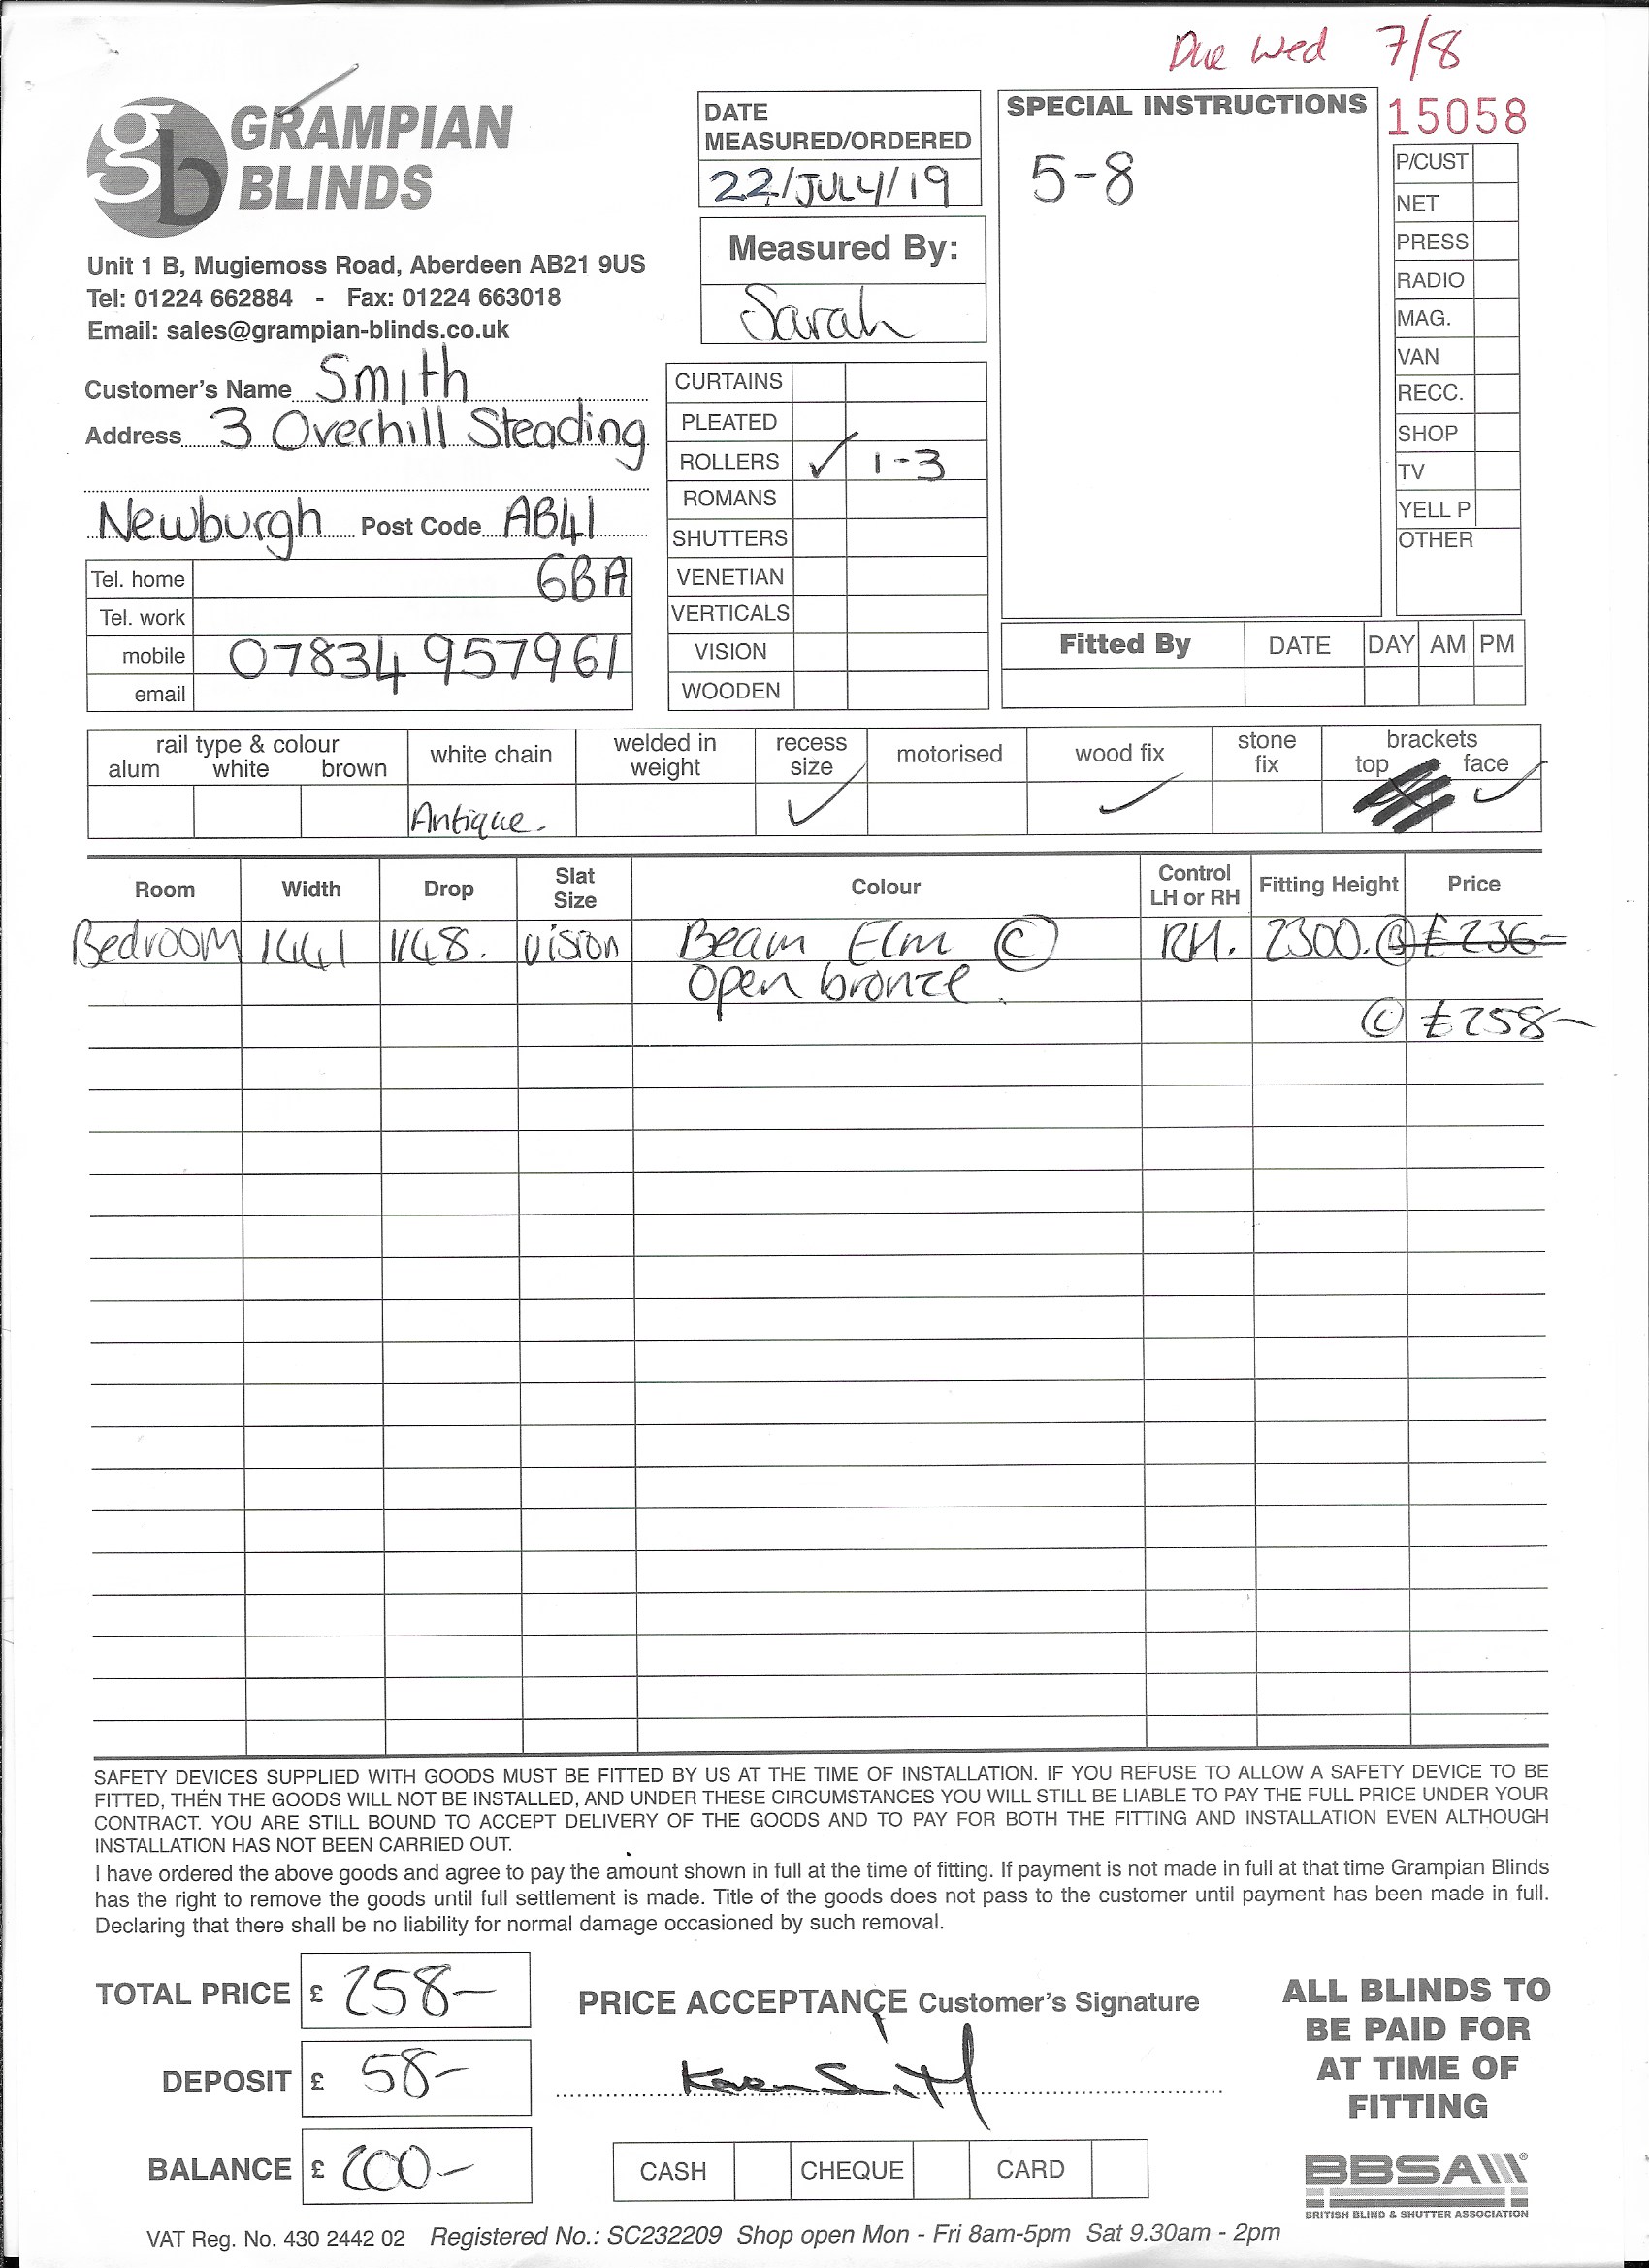 Due Wed 7/8
gb GRAMPIAN
BLINDS
Unit 1 B, Mugiemoss Road, Aberdeen AB21 9US
Tel: 01224 662884 - Fax: 01224 663018
Email: sales@grampian-blinds.co.uk
Customer's Name Smith
Address 3 Overhill Steading
Newburgh Post Code AB41
6BA
Tel. home
Tel. work
mobile 07834 957961
email
DATE
MEASURED/ORDERED
22/JULY/19
Measured By:
Sarah
CURTAINS
PLEATED
ROLLERS ✓ 1-3
ROMANS
SHUTTERS
VENETIAN
VERTICALS
VISION
WOODEN
SPECIAL INSTRUCTIONS
5-8
15058
P/CUST
NET
PRESS
RADIO
MAG.
VAN
RECC.
SHOP
TV
YELL P
OTHER
Fitted By DATE DAY AM PM
rail type & colour
alum white brown
white chain
Antique.
welded in
weight
recess
size
✓
motorised
wood fix
✓
stone
fix
brackets
top face
✓
Room Width Drop Slat Size Colour Control LH or RH Fitting Height Price
Bedroom 1441 1148. Vision Beam Elm © RH. 2300. Ⓑ £236-
Open bronze.
© £258-
SAFETY DEVICES SUPPLIED WITH GOODS MUST BE FITTED BY US AT THE TIME OF INSTALLATION. IF YOU REFUSE TO ALLOW A SAFETY DEVICE TO BE
FITTED, THEN THE GOODS WILL NOT BE INSTALLED, AND UNDER THESE CIRCUMSTANCES YOU WILL STILL BE LIABLE TO PAY THE FULL PRICE UNDER YOUR
CONTRACT. YOU ARE STILL BOUND TO ACCEPT DELIVERY OF THE GOODS AND TO PAY FOR BOTH THE FITTING AND INSTALLATION EVEN ALTHOUGH
INSTALLATION HAS NOT BEEN CARRIED OUT.
I have ordered the above goods and agree to pay the amount shown in full at the time of fitting. If payment is not made in full at that time Grampian Blinds
has the right to remove the goods until full settlement is made. Title of the goods does not pass to the customer until payment has been made in full.
Declaring that there shall be no liability for normal damage occasioned by such removal.
TOTAL PRICE £ 258-
DEPOSIT £ 58-
BALANCE £ 200-
PRICE ACCEPTANCE Customer's Signature
Karen Smith
CASH CHEQUE CARD
ALL BLINDS TO
BE PAID FOR
AT TIME OF
FITTING
BBSA
BRITISH BLIND & SHUTTER ASSOCIATION
VAT Reg. No. 430 2442 02 Registered No.: SC232209 Shop open Mon - Fri 8am-5pm Sat 9.30am - 2pm